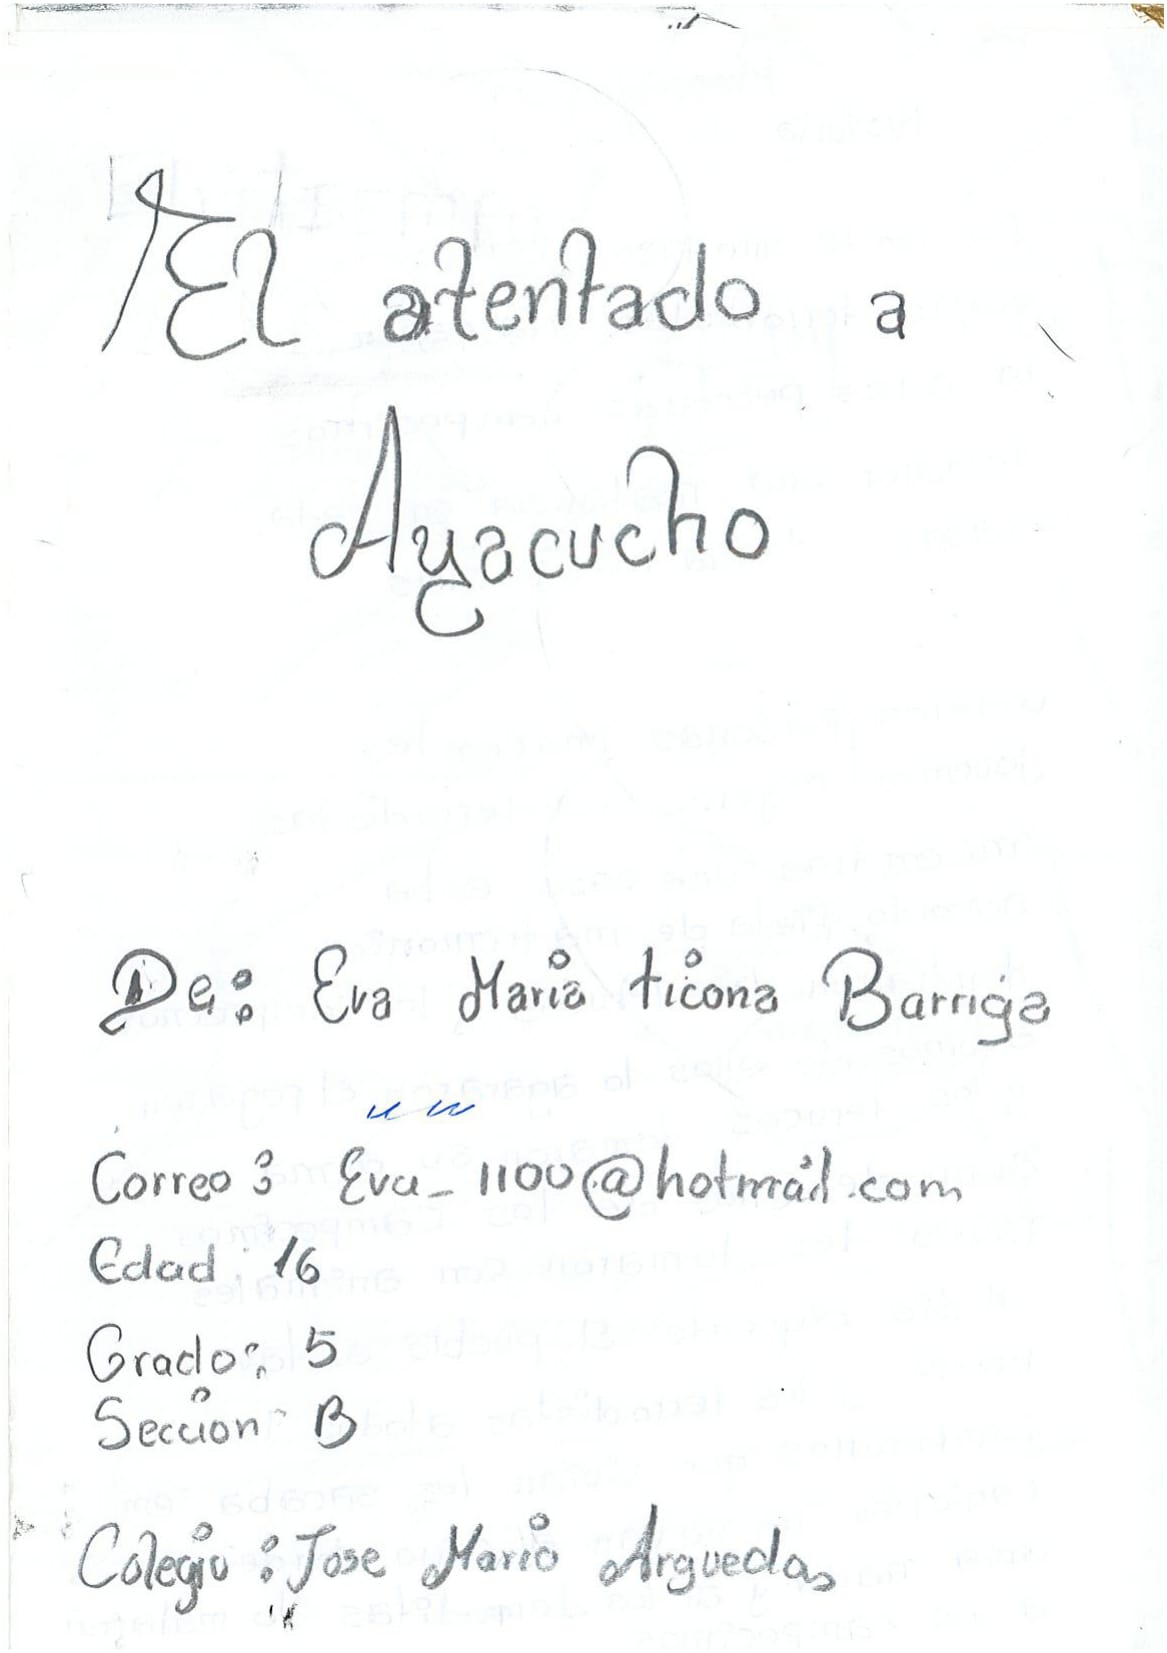 El atentado a
Ayacucho
De: Eva Maria ticona Barriga
Correo : Eva_1100@hotmail.com
Edad : 16
Grado: 5
Seccion: B
Colegio : Jose Maria Arguedas